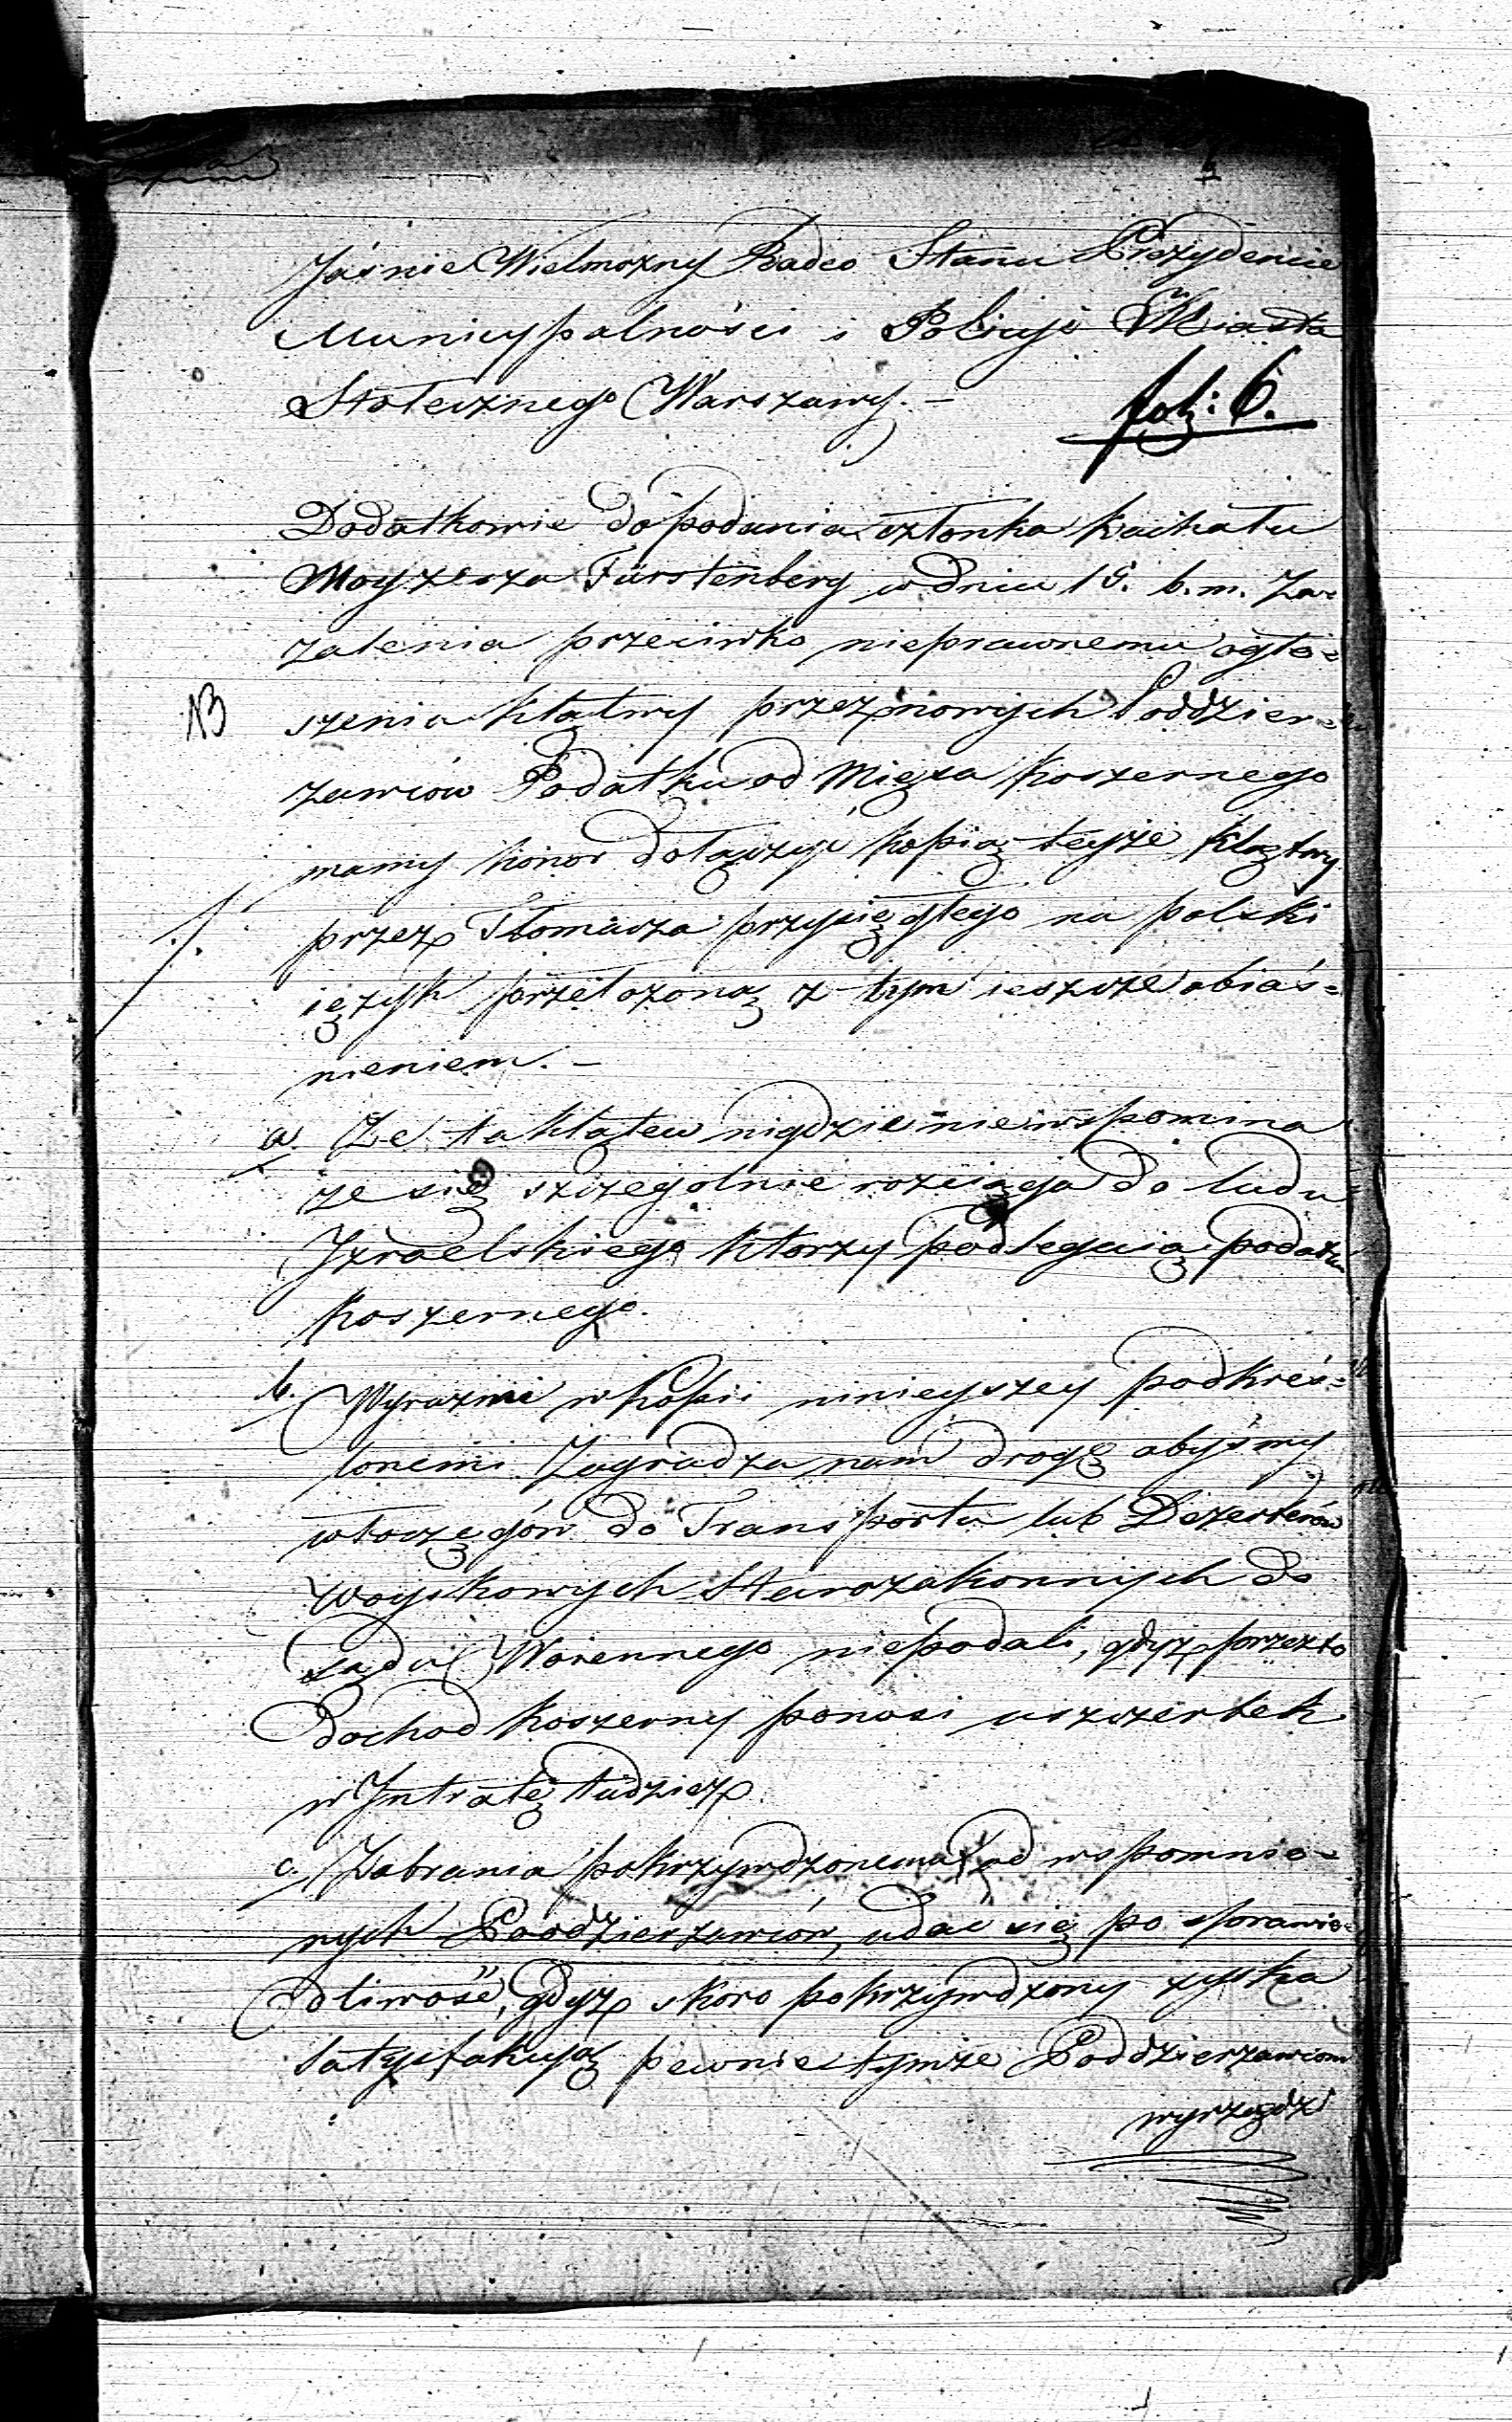 Jaśnie Wielmożny Radco Stanu Prezydencie
Municypalności i Policyi Miasta
Stołecznego Warszawy. –
fol: 6.
Dodatkowie do podania członka Kachału
Moyżesza Fürstenberg w dniu 15. b. m. Za-
żalenia przeciwko nieprawnemu ogło=
13
szenia klątwy przez nowych Poddzier=
żawców Podatku od Mięsa Koszernego
mamy honor dołączyć kopią teyże klątwy
./.
przez Tłomacza przysięgłego na polski
ięzyk przełożoną z tym ieszcze obiaś=
nieniem. –
a. Że ta klątew nigdzie nie wspomina
że się szczegolnie rozciąga do ludu
Izraelskiego ktorzy podlegaią podatku
koszernego.
b. Wyrazmi w kopii ninieyszey podkreś=
lonemi Zagradza nam drogę abyśmy
włoczęgów do Transportu lub Dezerterów
woyskowych Starozakonnych do
Sądu Woiennego niepodali, gdyż przez to
Dochod koszerny ponosi uszczerbek
w Intratę tudzież
c. Zabrania pokrzywdzonemu od wspomnio=
nych Poddzierżawców, udać się po sprawie=
dliwość, gdyż skoro pokrzywdzony zyska
satysfakcyą pewnie tymże Poddzierżawcom
wyrządz